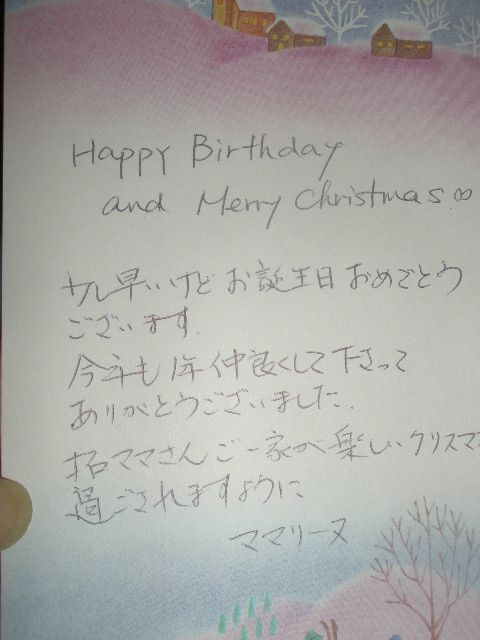 Happy Birthday
and Merry Christmas.∞
少し早いけど お誕生日 おめでとう
ございます.
今年も 1年 仲良くして下さって
ありがとうございました.
拓ママさんご一家が楽しいクリスマス
過ごされますように
ママリーヌ